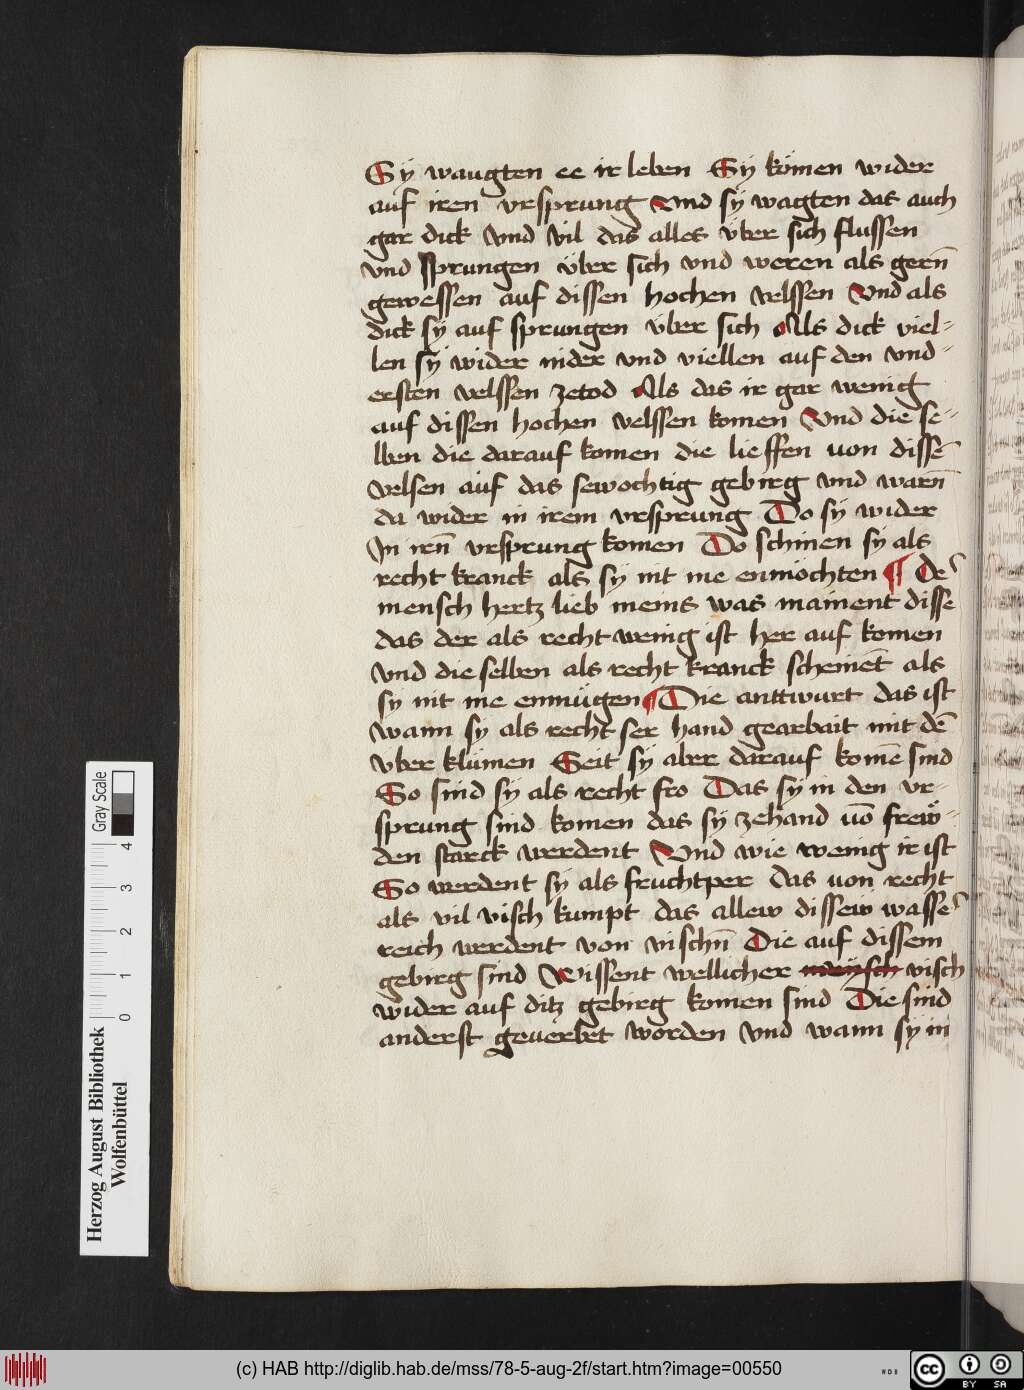 Sÿ waugten ee ir leben Sÿ kömen wider
auf iren vrsprung Vnd sÿ wagten das auch
gar dick vnd vil das alles v̈ber sich flussen
vnd sprungen v̈ber sich vnd weren als gern̄
gewessen auf dissen hochen velssen Vnd als
dick sÿ auf sprungen v̈ber sich Als dick viel⸗
len sÿ wider nider vnd viellen auf den vnd⸗
ersten velssen zetod Als das ir gar wenig
auf dissen hochen velssen komen Vnd die se⸗
lben die darauf komen die lieffen von dissē
velsen auf das sewochtig gebirg vnd warn̄
da wider in irem vrsprung Do sÿ wider
In irn̄ vrsprung komen Do schinen sÿ als
recht kranck als sÿ nit me enmöchten ¶ De᷑
mensch hertz lieb meins was mainent disse
das der als recht wenig ist her auf komen
vnd die selben als recht kranck scheinēt als
sÿ nit me enmügen ¶ Die anttwurt das ist
wann sÿ als recht ser hand gearbait mit dē
v̈ber klümen Seit sÿ aber darauf komē sind
So sind sÿ als recht fro Das sÿ in den vr⸗
sprung sind komen das sÿ zehand vō frew̎⸗
den starck werdent Vnd wie wenig ir ist
So werdent sÿ als fruchtper das von recht
als vil visch kumpt das allew dissew wasse᷑
reich werdent von vischn̄ Die auf dissem
gebirg sind Wissent wellicher mensch visch
wider auf ditz gebirg komen sind Die sind
anderst geuerbet worden vnd wann sÿ in
Gray Scale
0 1 2 3 4
Herzog August Bibliothek
Wolfenbüttel
(c) HAB http://diglib.hab.de/mss/78-5-aug-2f/start.htm?image=00550
WDB
cc BY SA